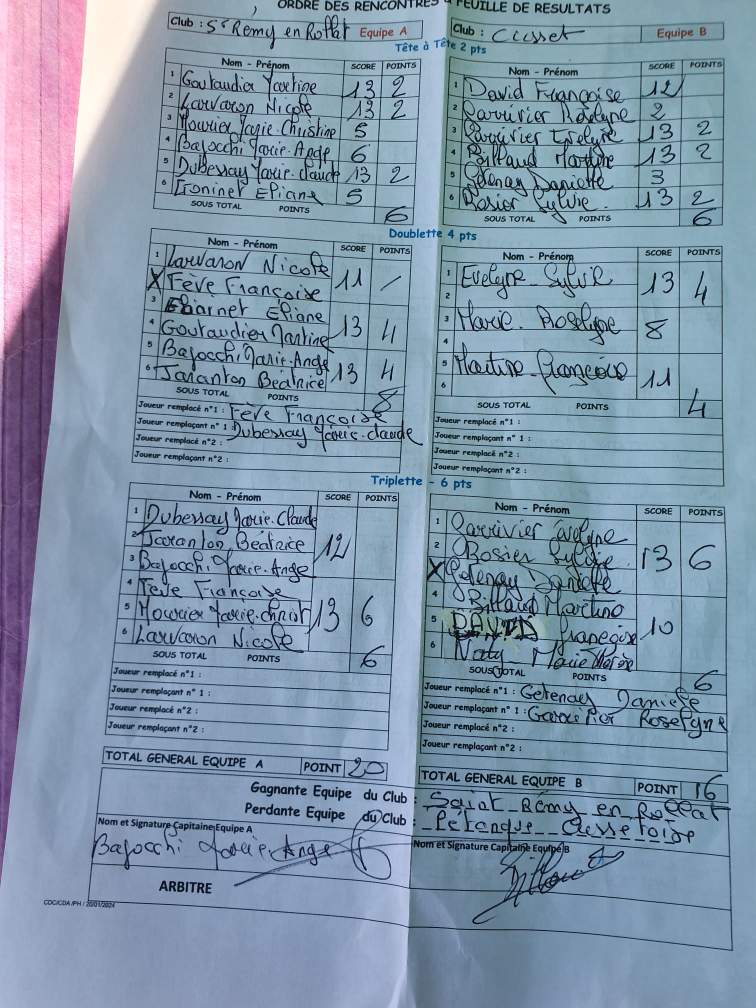 ORDRE DES RENCONTRES FEUILLE DE RESULTATS
Club : St Remy en Rollat Equipe A
Club : Cusset Equipe B
Tête à Tête 2 pts
Nom - Prénom SCORE POINTS
1 Goutaudier Martine 13 2
2 Larvaron Nicole 13 2
3 Mourier Marie Christine 5
4 Bajocchi Marie-Ange 6
5 Dubessay Marie-Claude 13 2
6 Eliane 5
SOUS TOTAL POINTS 6
Nom - Prénom SCORE POINTS
1 David Françoise 12
2 Roselyne 2
3 Evelyne 13 2
4 Billaud Martine 13 2
5 Danielle 3
6 Rosier Sylvie 13 2
SOUS TOTAL POINTS 6
Doublette 4 pts
Nom - Prénom SCORE POINTS
1 Larvaron Nicole 11 /
2 X Fève Françoise
3 Eliane
4 Goutaudier Martine 13 4
5 Bajocchi Marie-Ange
6 Jaranton Béatrice 13 4
SOUS TOTAL POINTS 8
Joueur remplacé n°1 : Fève Françoise
Joueur remplaçant n° 1 : Dubessay Marie-Claude
Joueur remplacé n°2 :
Joueur remplaçant n°2 :
Nom - Prénom SCORE POINTS
1 Evelyne - Sylvie 13 4
2
3 Marie - Roselyne 8
4
5 Martine - Françoise 11
6
SOUS TOTAL POINTS 4
Joueur remplacé n°1 :
Joueur remplaçant n° 1 :
Joueur remplacé n°2 :
Joueur remplaçant n°2 :
Triplette - 6 pts
Nom - Prénom SCORE POINTS
1 Dubessay Marie-Claude
2 Jaranton Béatrice 12
3 Bajocchi Marie-Ange
4 Fève Françoise
5 Mourier Marie-Christ 13 6
6 Larvaron Nicole
SOUS TOTAL POINTS 6
Joueur remplacé n°1 :
Joueur remplaçant n° 1 :
Joueur remplacé n°2 :
Joueur remplaçant n°2 :
Nom - Prénom SCORE POINTS
1 Evelyne
2 Rosier Sylvie 13 6
3 X Danielle
4 Billaud Martine
5 DAVID Françoise 10
6 Naty - Marie Thérèse
SOUS TOTAL POINTS 6
Joueur remplacé n°1 : Danièle
Joueur remplaçant n° 1 : Roselyne
Joueur remplacé n°2 :
Joueur remplaçant n°2 :
TOTAL GENERAL EQUIPE A POINT 20
TOTAL GENERAL EQUIPE B POINT 16
Gagnante Equipe du Club : Saint - Rémy - en Rollat
Perdante Equipe du Club : Pétanque - Cussetoise
Nom et Signature Capitaine Equipe A
Bajocchi Marie-Ange
Nom et Signature Capitaine Equipe B
ARBITRE
CDC/CDA /PH / 20/01/2024